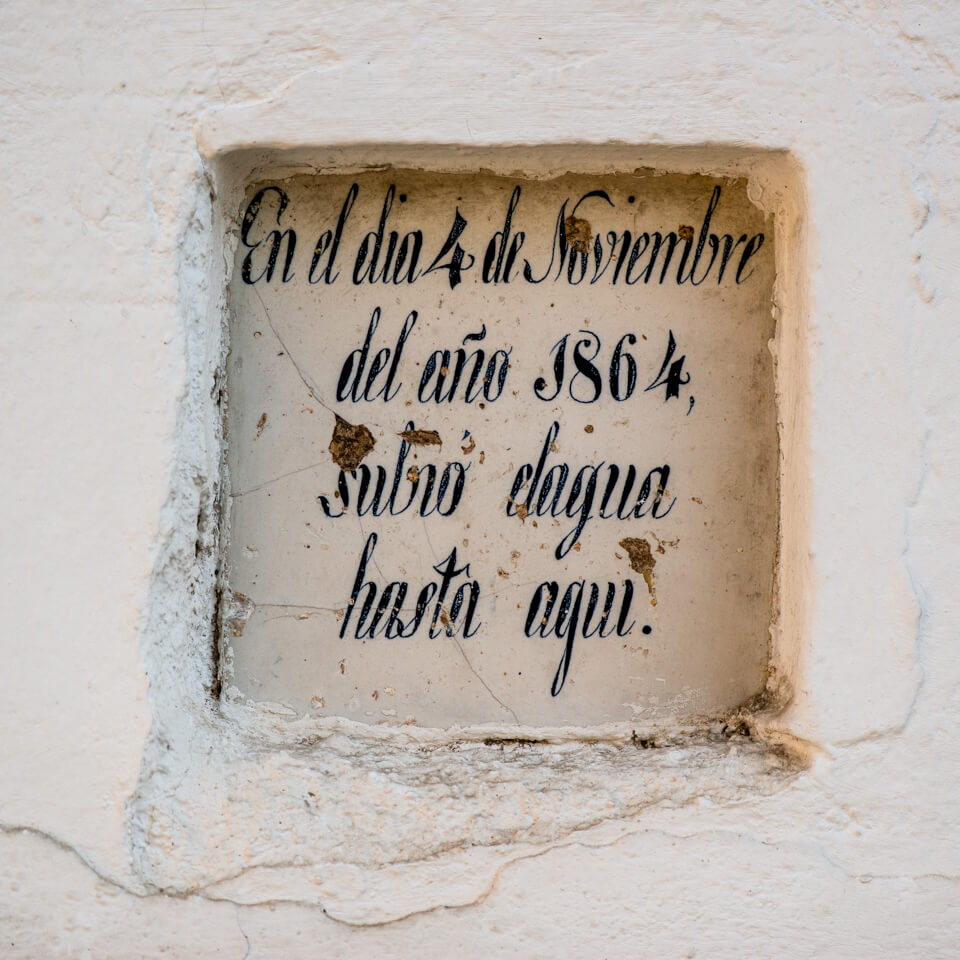 En el dia 4 de Noviembre
del año 1864,
subió elagua
hasta aqui.